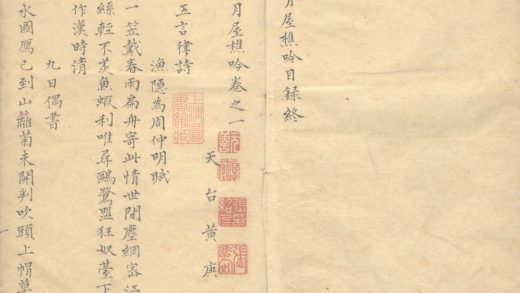 月屋樵吟目録終
月屋樵吟卷之一
天台黄庚
五言律詩
漁隱為周仲明賦
一笠戴春雨扁舟寄此情世間塵網密江
絲輕不羨魚蝦利唯尋鷗鷺盟狂奴臺下
作漢時清
九日偶書
水國鴈已到山籬菊未開判吹頭上帽